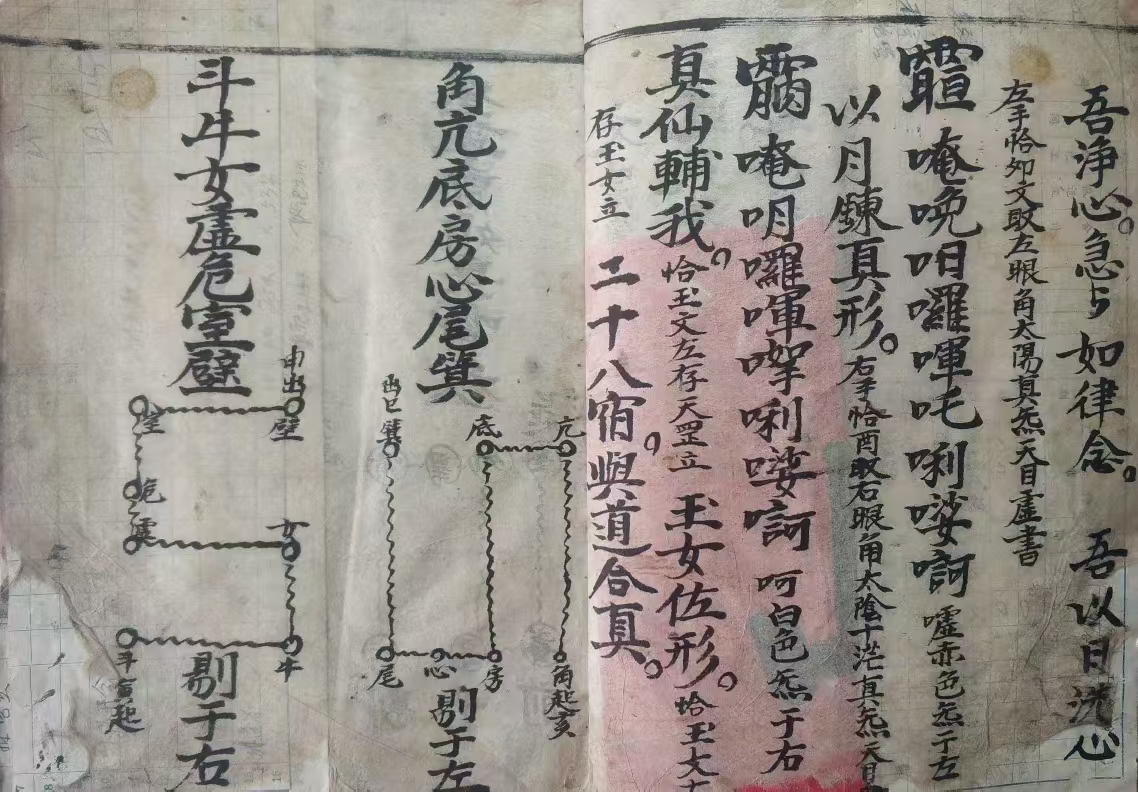 吾浄心。急々如律念。 吾以日洗心
左手恰夘文取左眼角太陽真炁天目虛書
唵㘊哹囉嗶吒唎㗭㗿 嘘赤色炁于左
以月鍊真形。右手恰酉取右眼角太陰十茫真炁天目
唵哹囉嗶㗭唎㗭㗿 呵白色炁于右
真仙輔我。恰玉文左存天罡立 玉女佐形。恰玉文
存玉女立 二十八宿。與道合真。
角亢底房心尾箕
亢
底
角起亥
房
心
尾
箕
剔于左
斗牛女虛危室壁
申出
壁
室
危
虛
女
牛
斗寅起
剔于右